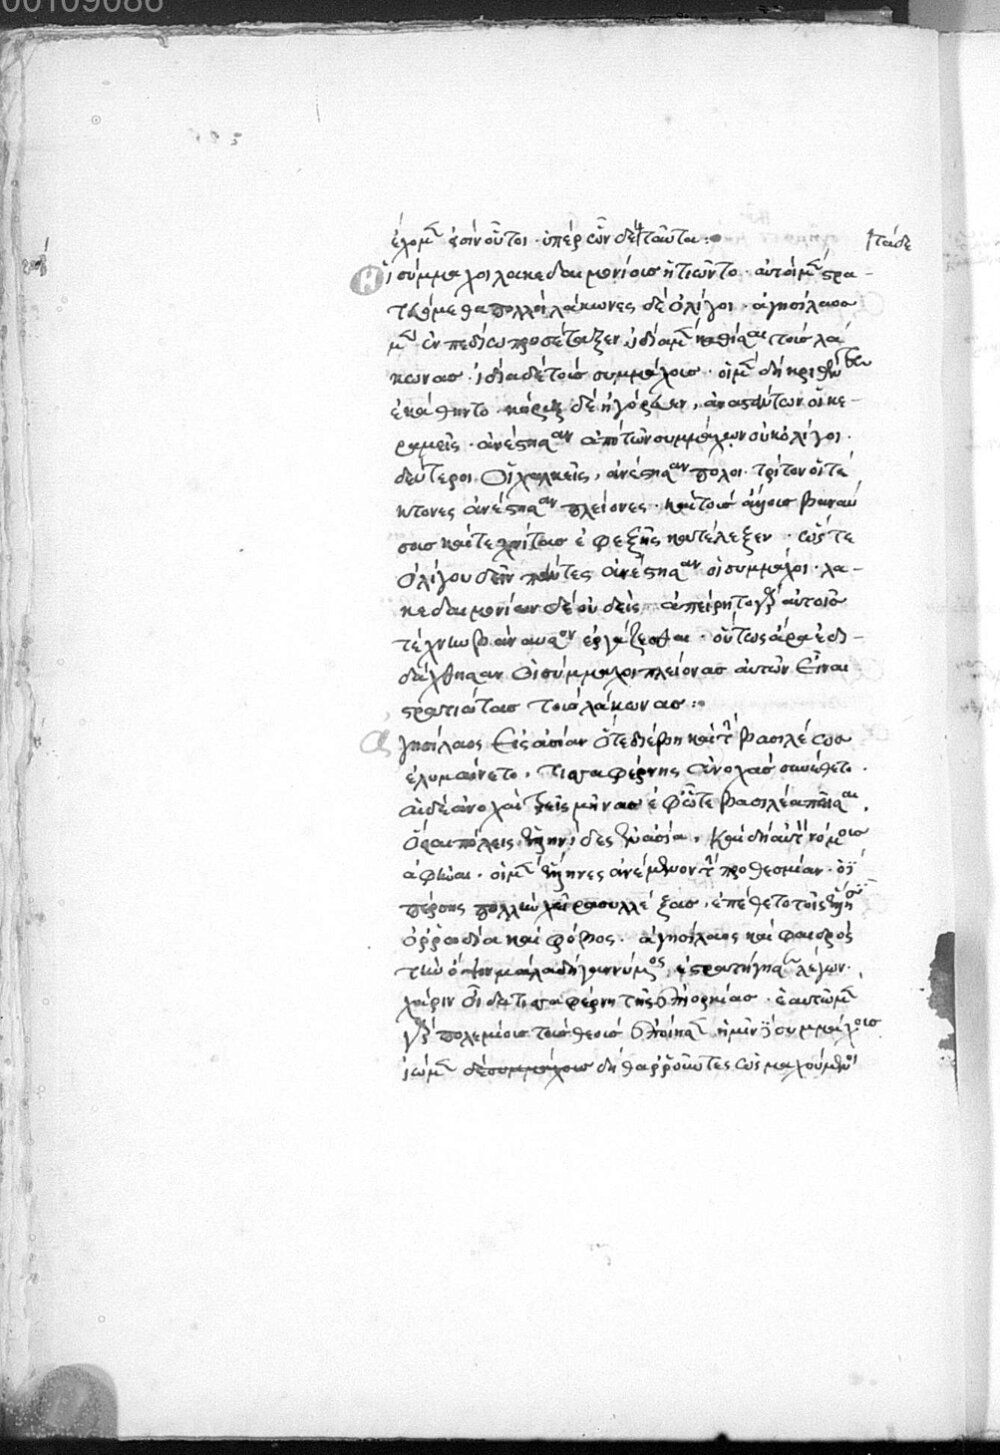 00109086
ἕλομεν εἰσὶν οὗτοι· ὑπὲρ ὧν δὲ ταῦτα:
τάδε
οἱ σύμμαχοι λακεδαιμονίοις ἠτιῶντο· αὐτοὶ μὲν στρα-
τευόμεθα πολλοὶ λάκωνες δὲ ὀλίγοι· ἀγησίλαος
μὲν ἐν πεδίω προσέταξεν ἰδία μὲν καθίσαι τοὺς λά
κωνας· ἰδία δὲ τοὺς συμμάχους· οἱ μὲν δὴ κριθέντες
ἐκάθηντο· κήρυξ δὲ ἠγόρευεν, ἀναστάντων οἱ κε-
ραμεῖς· ἀνέστησαν ἀπὸ τῶν συμμάχων οὐκ ὀλίγοι·
δεύτεροι οἱ χαλκεῖς, ἀνέστησαν πολοι· τρίτον οἱ τέ
κτονες ἀνέστησαν πλείονες· καὶ τοὺς ἄλλους βαναύ
σους καὶ τεχνίτας ἐφεξῆς κατέλεξεν· ὥστε
ὀλίγου δεῖν πάντες ἀνέστησαν οἱ σύμμαχοι· λα-
κεδαιμονίων δὲ οὐδείς· ἀπείρητο γὰρ αὐτοῖς
τέχνην βάναυσον ἐργάζεσθαι· οὕτως ἄρα ἐδι-
δάχθησαν οἱ σύμμαχοι πλείονας αὐτῶν εἶναι
στρατιώτας τοὺς λάκωνας:
ἀγησίλαος εἰς ἀσίαν ὅτε διέβη καὶ τὴν βασιλέως
ἐλυμαίνετο, τισσαφέρνης ἀνοχὰς συνέθετο·
αἱ δὲ ἀνοχαὶ τρεῖς μῆνας ἐφ' ὧτε βασιλέα πεῖσαι,
ὅσαι πόλεις ἑλληνίδες ἐν ἀσία, καὶ δὴ αὐτονόμους
ἀφεῖναι· οἱ μὲν ἕλληνες ἀνέμενον τὴν προθεσμίαν· ὁ δὲ
πέρσης πολλὴν χεῖρα συλλέξας, ἐπέθετο τοῖς ἕλλησι
ὀρρωδία καὶ φόβος· ἀγησίλαος καὶ φαιδρὸς
τὴν ὄψιν μάλα δὴ γανύμενος, ἐστρατήγησε λέγων·
χάριν οἶδα τισσαφέρνη τῆς ἐπιορκίας· ἑαυτῶ μὲν
γὰρ πολεμίους τοὺς θεοὺς ἐποίησεν ἡμῖν δὲ συμμάχους
ἴωμεν δὲ συμμάχοις δὴ θαρροῦντες ὡς μαχούμενοι